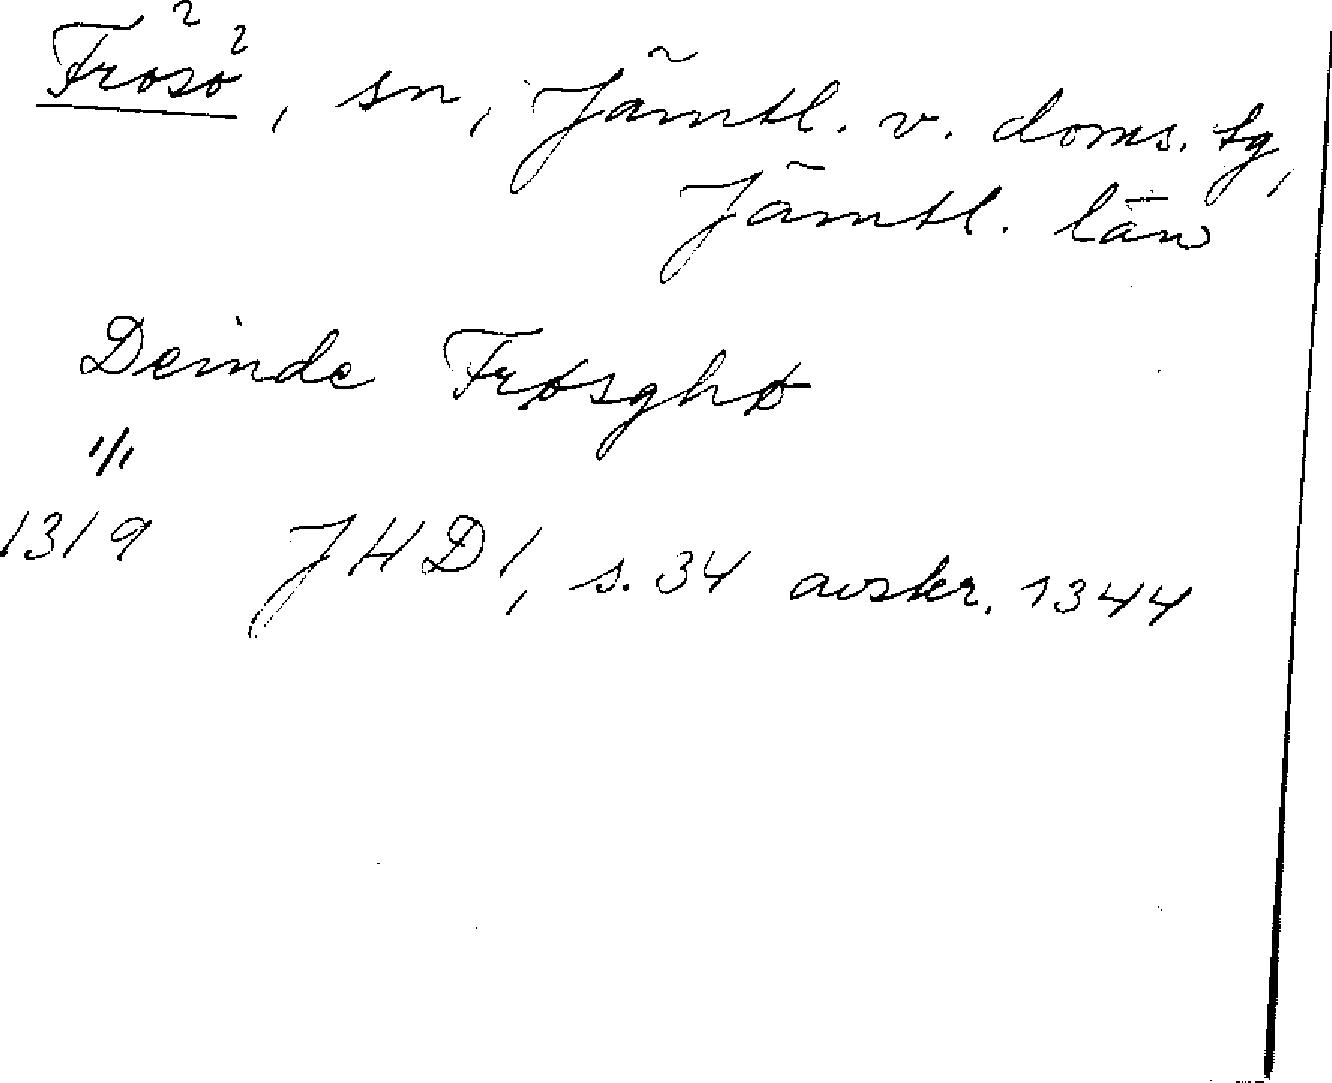 Frösö, sn, Jämtl. v. doms. tg,
Jämtl. län
Deinde Frøsghø
1/1
1319 JHD 1, s. 34 avskr. 1344